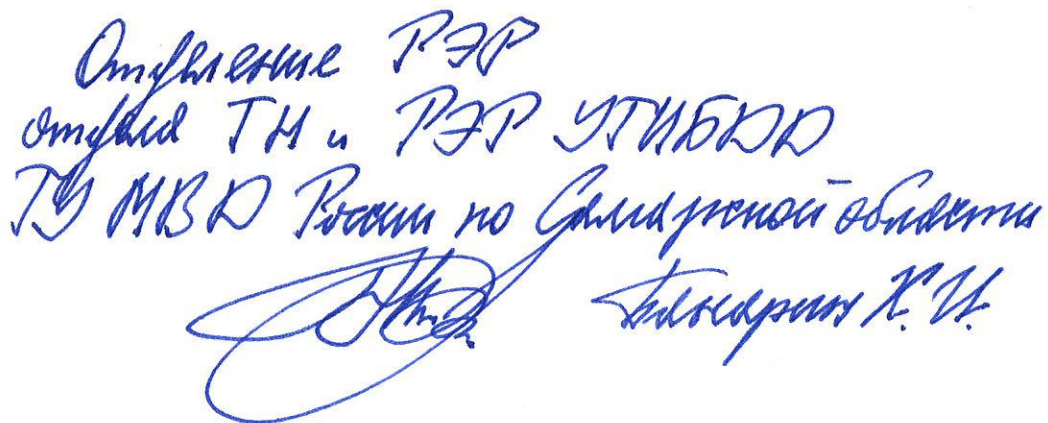 Отделение РЭР
отдела ТН и РЭР УГИБДД
ГУ МВД России по Самарской области
Х. И.